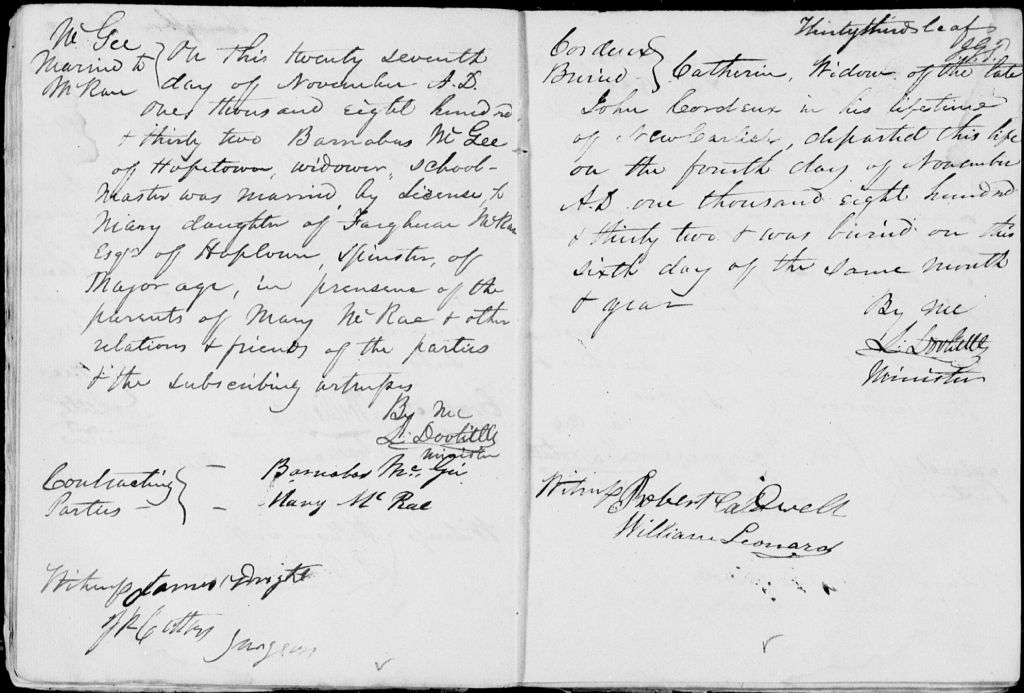 Mc Gee
Married to
McRae
On this twenty seventh
day of November A.D.
one thousand eight hundred
& thirty two Barnabas Mc Gee
of Hopetown, widower, school-
master was married, by License, to
Mary daughter of Farquhar McRae
Esqr. of Hoptown, Spinster, of
Major age, in presence of the
parents of Mary Mc Rae & other
relations & friends of the parties
& the subscribing witnesses
By me
L. Doolittle
Minister
Contracting
Parties -
Barnabas Mc Gie
Mary Mc Rae
Witness James Wright
Surgeon
Thirty third leaf
Cordeux
Buried
Catherin, Widow of the late
John Cordeux in his lifetime
of New Carlisle, departed this life
on the fourth day of November
A.D. one thousand eight hundred
& thirty two & was buried on this
sixth day of the same month
& year
By me
L. Doolittle
Minister
Witness Robert Caldwell
William Leonard